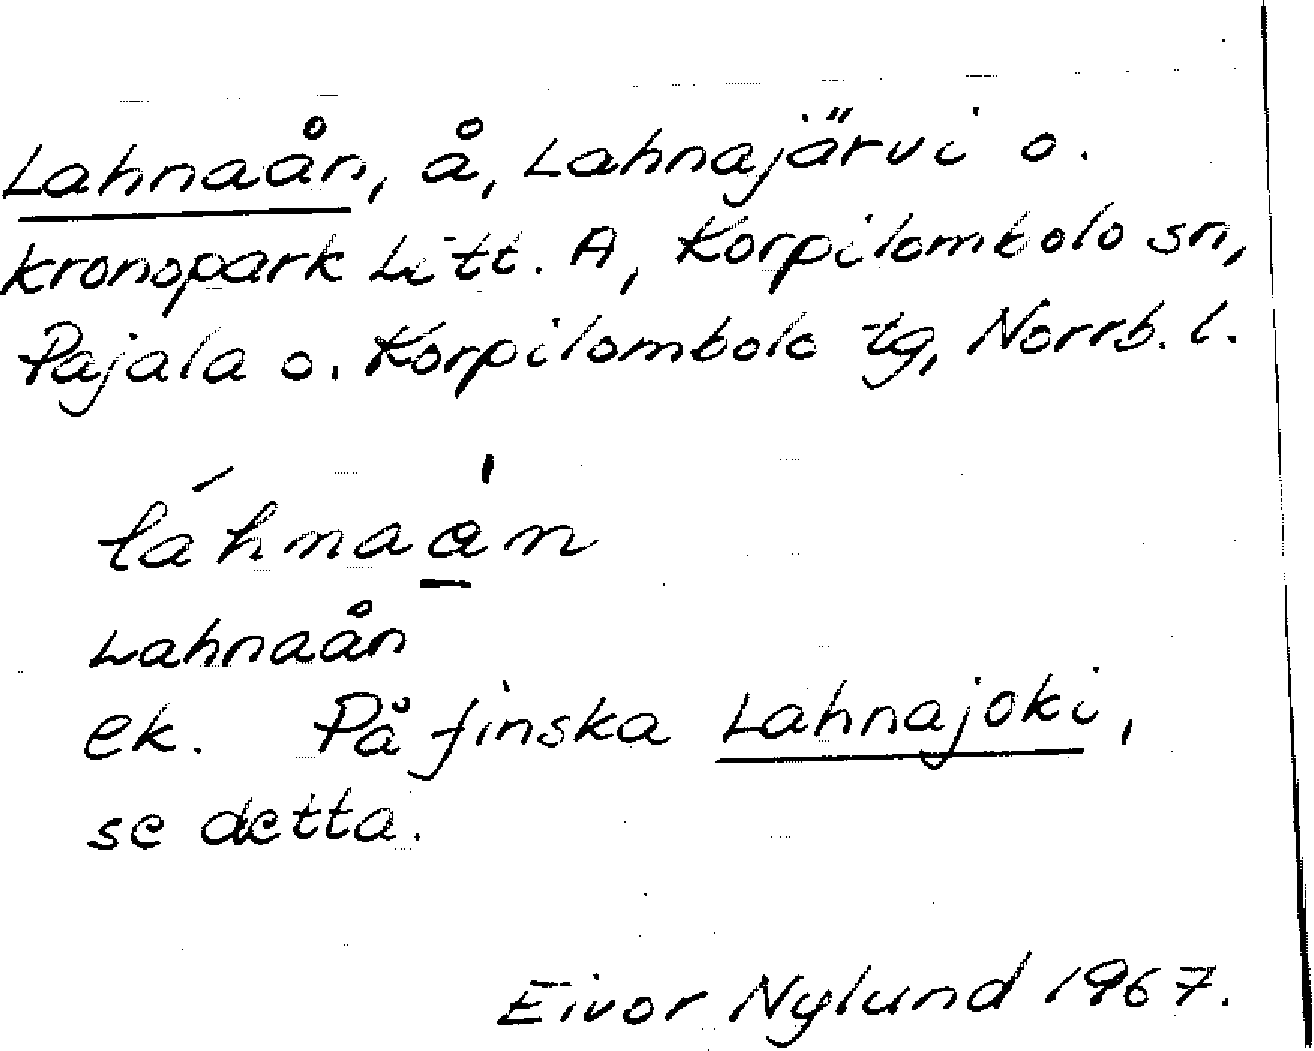 Lahnaån, å, Lahnajärvi o.
kronopark Litt. A, Korpilombolo sn,
Pajala o. Korpilombolo tg, Norrb. l.
láhnaa̱̍n
Lahnaån
ek. På finska Lahnajoki,
se detta.
Eivor Nylund 1967.